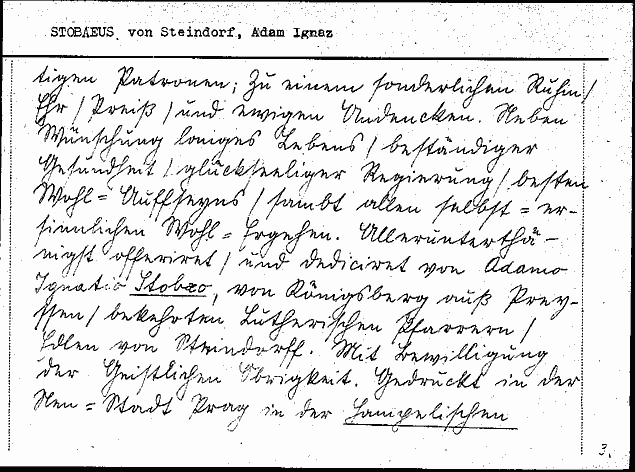 STOBAEUS von Steindorf, Adam Ignaz
tigen Patronen; Zu einem sonderlichen Ruhm/
Ehr / Preiß / und ewigen Andencken. Neben
Wünschung langes Lebens / beständiger
Gesundheit / glückseeliger Regierung / besten
Wohl = Auffseyns / sambt allen selbst = er-
sinnlichen Wohl = Ergehen. Allerunterthä-
nigst offeriret / und dediciret von Adamo
Ignatio Stobæo, von Königsberg auß Prey-
ssen / bekehrten Lutherischen Pfarrern /
Edlen von Steindorff. Mit Bewilligung
der Geistlichen Obrigkeit. Gedruckt in der
Neu = Stadt Prag in der Hampelischen
3.